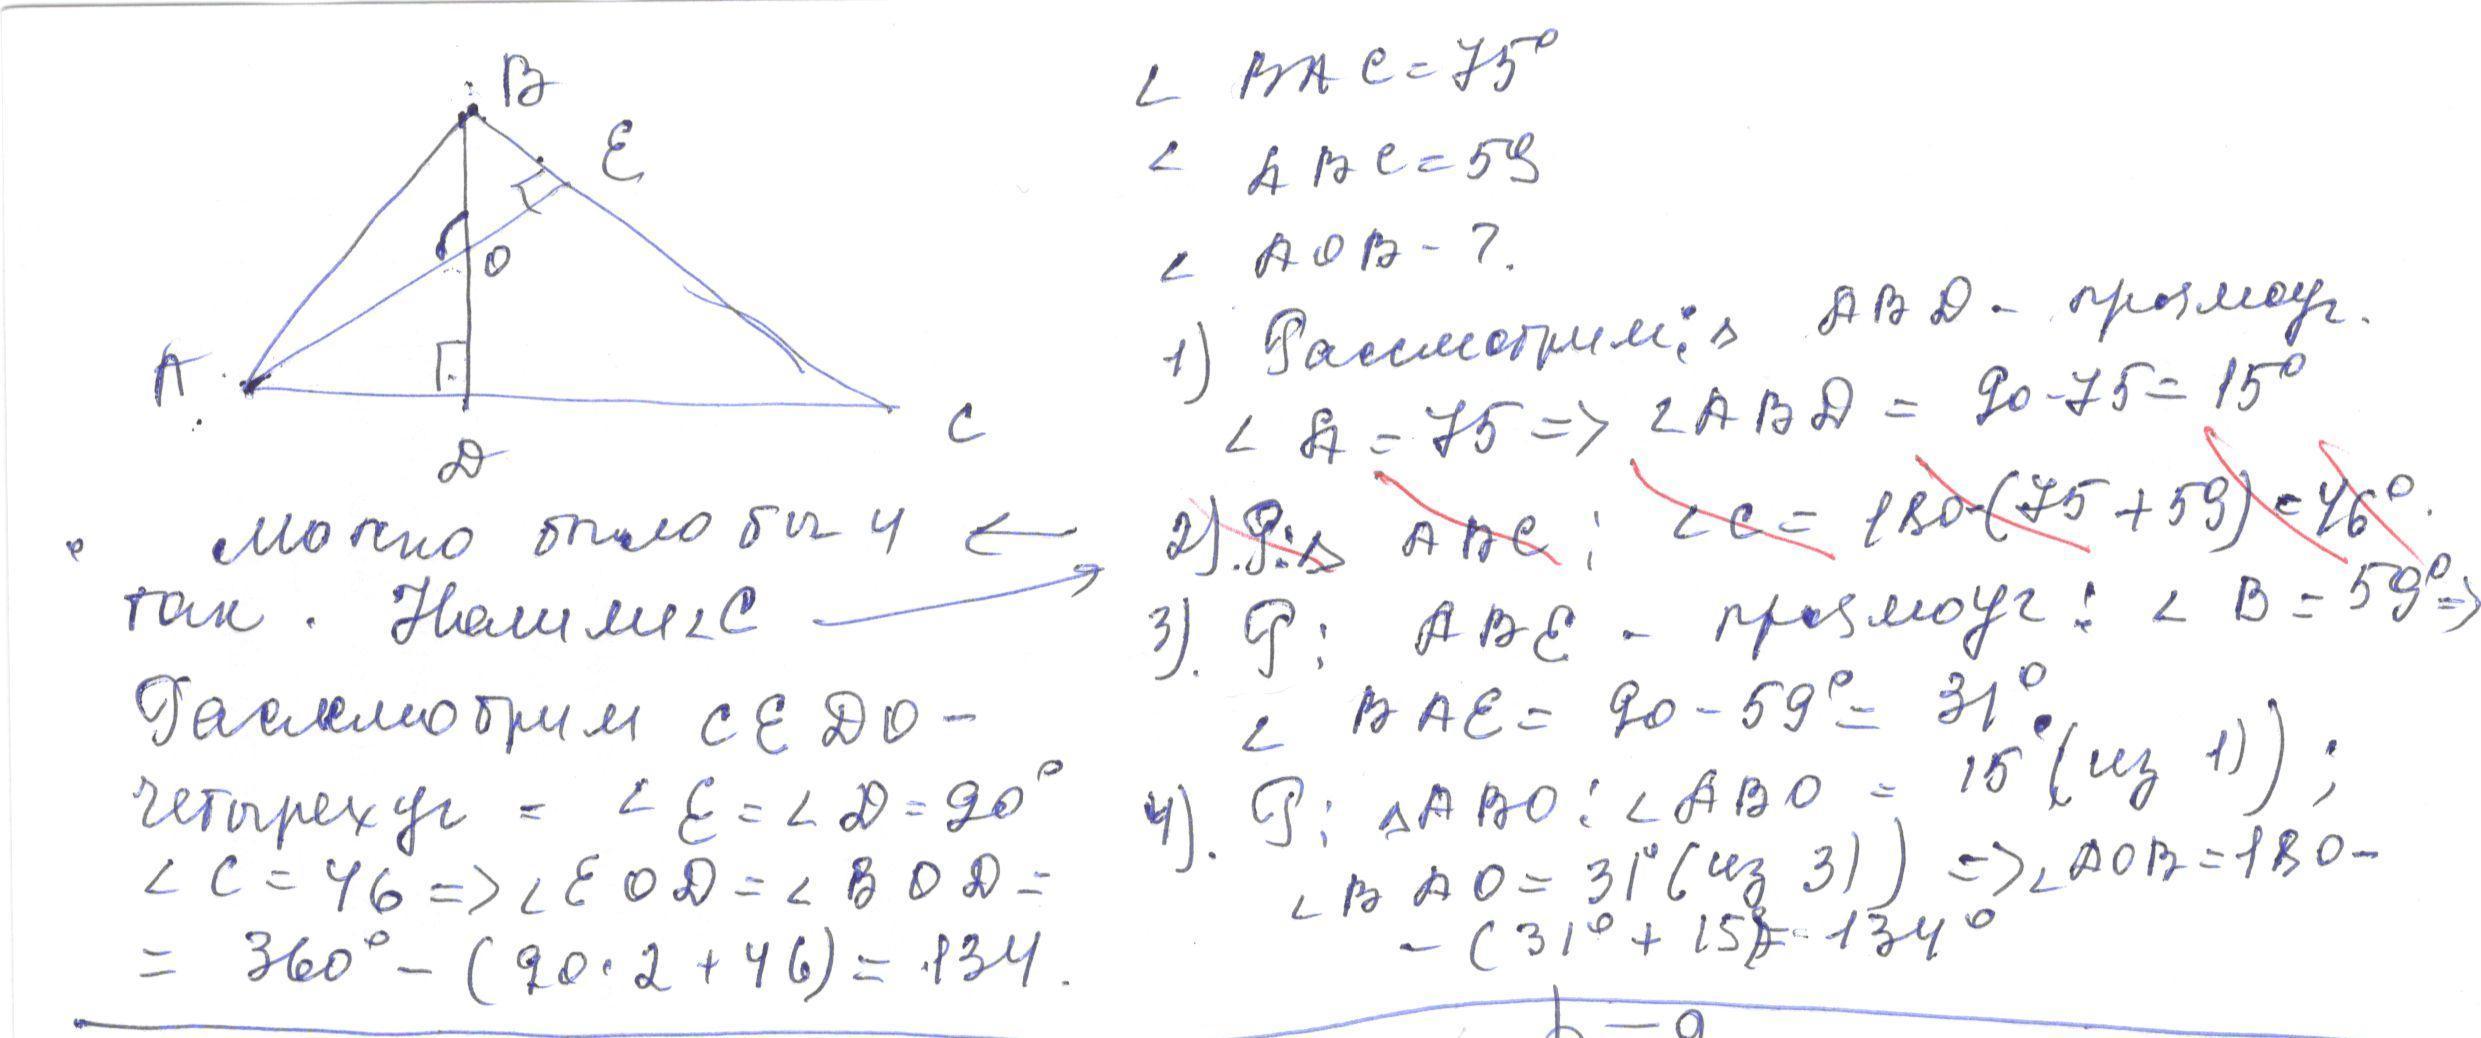 B
E
O
A
D
C
∠ BAC = 75°
∠ ABC = 59
∠ AOB - ?
1) Рассмотрим: △ ABD - прямоуг.
∠ A = 75 => ∠ABD = 90-75 = 15°
2). Р: △ ABC : ∠C = 180-(75+59) = 46°.
3). Р: ABE - прямоуг : ∠ B = 59° =>
∠ BAE = 90 - 59° = 31°.
4). Р: △ABO : ∠ABO = 15°(из 1));
∠BAO = 31°(из 3)) => ∠AOB = 180-
- (31° + 15)= 134°
Можно было бы и ←
так. Найдём ∠C →
Рассмотрим CEDO -
четырехуг = ∠E = ∠D = 90°
∠C = 46 => ∠EOD = ∠BOD =
= 360° - (90·2 + 46) = 134.